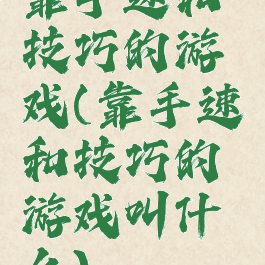 靠手速和
技巧的游
戏(靠手速
和技巧的
游戏叫什
么)